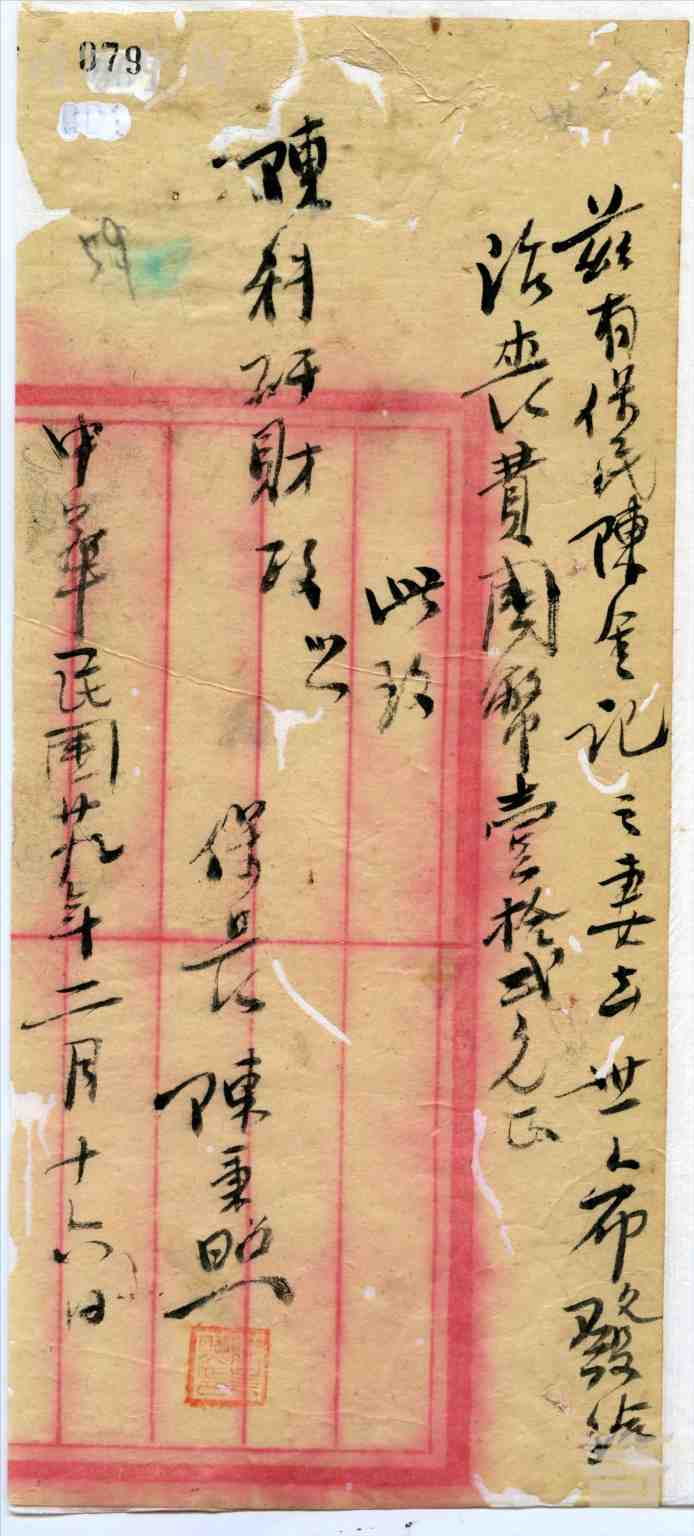 079
茲有保民陳金記之妻去世々希發給
治喪費國幣壹拾弍元正
此致
陳科研財政 公
保長 陳秉照
中華民國廿九年二月十六日
59